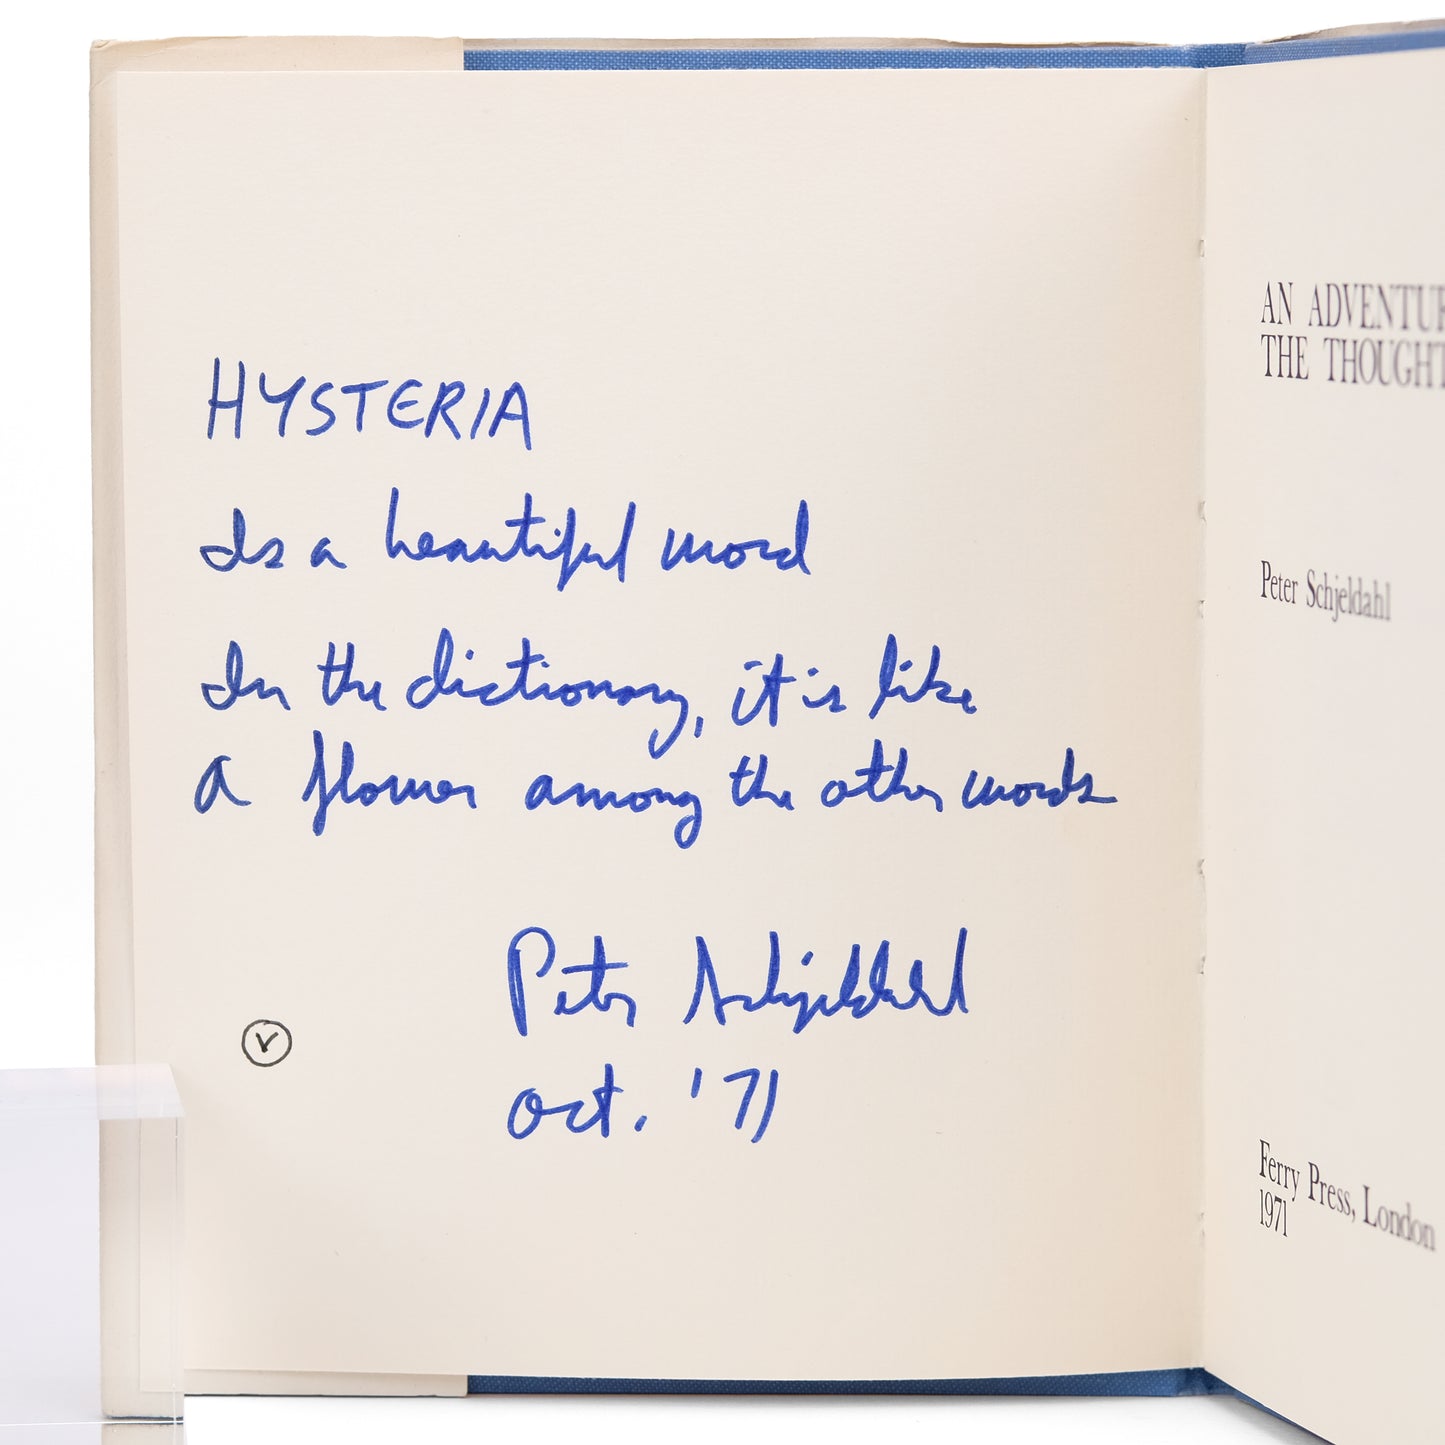 HYSTERIA
Is a beautiful word
In the dictionary, it is like
a flower among the other words
Peter Schjeldahl
Oct. '71
V
AN ADVENTUR
THE THOUGHT
Peter Schjeldahl
Ferry Press, London
1971